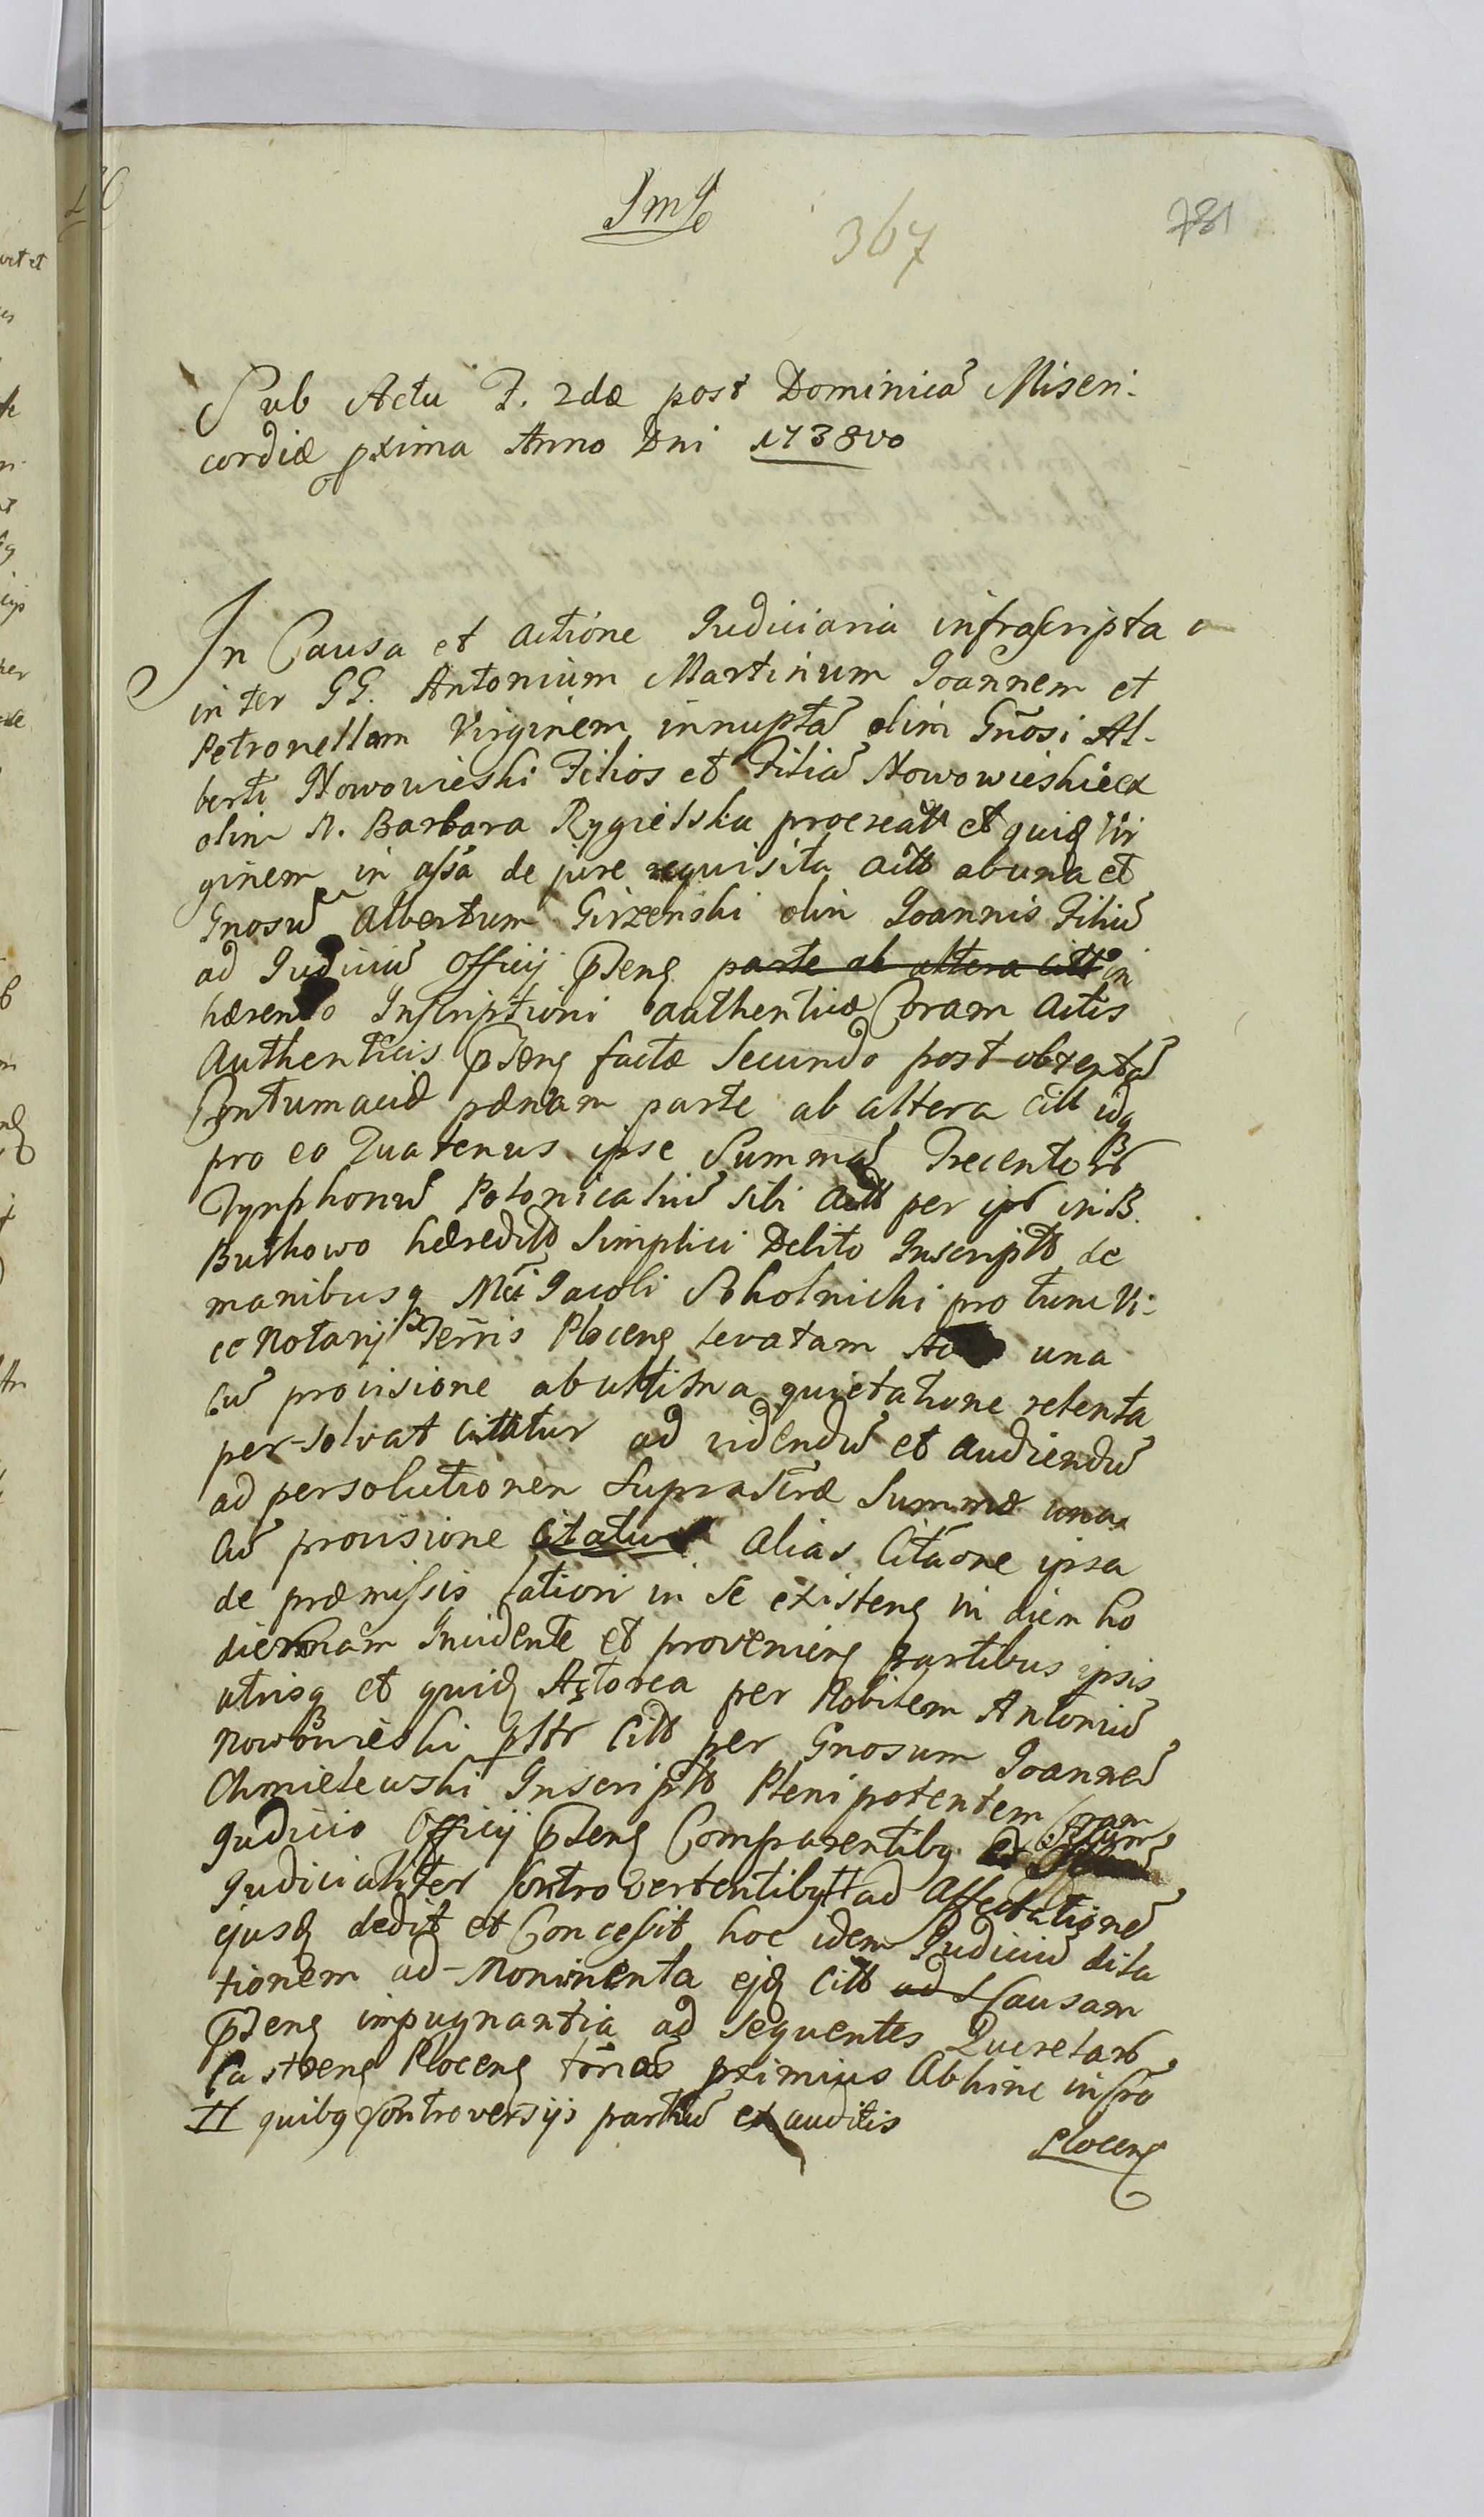 367
781
Sub Actu F. 2dæ post Dominicā Miseri-
cordiæ pxima Anno Dni 1738vo
In Causa et actione Judiciaria infrascripta
inter GG. Antonium Martinum Joannem et
Petronellam Virginem innuptā olim Gnosi Al-
berti Nowowieski Filios et Filiā Nowowieskie ex
olim N. Barbara Rygielska procreatt et quidē Vir
ginem in assā de jure requisita Actt ab una et
Gnosū Albertum Girzenski olim Joannis Filiū
ad Judiciū Officij pñteng parte ab altera citt in
hærendo Inscriptioni authenticæ Coram Actis
Authenticis pñteng factæ Secundo post obtentā
Contumaciæ pænam parte ab altera Citt idq
pro eo Quatenus ipse Summā Trecentorū
Tynphonū Polonicaliū sibi Actt per ips in B.
Butkowo hæreditt Simplici Debito Inscriptt de
manibusq Mci Jacobi Skolnicki pro tunc Vi-
ce Notarij Terris Ploceng levatam una
cū provisione ab ultima quietatione retenta
per-solvat citatur ad videndū et audiendū
ad persolutionem Suprascræ Summæ una
cū provisione Citatus alias Citaōne ipsa
de præmissis latiori in se existeng in diem ho
diernam Incidente et proveniēng Partibus ipsis
utrisq et quidē Actorea per Nobilem Antoniū
Nowowieski pttr Citt per Gnosum Joannē
Chmielewski Inscriptt Plenipotentem Coram
Judicio Officij pñteng Comparentibq et
Judicialiter Controvertentibq H ad Affectationē
ejusdē dedit et Concessit hoc idem Judiciū dila
tionem ad Monimenta ejdē Citt ad Causam
pñteng impugnantia ad Sequentes Querelarū
Castreng Ploceng tōrias pximius Abhinc infrō
H quibq Controversijs partiū exauditis
Ploceng